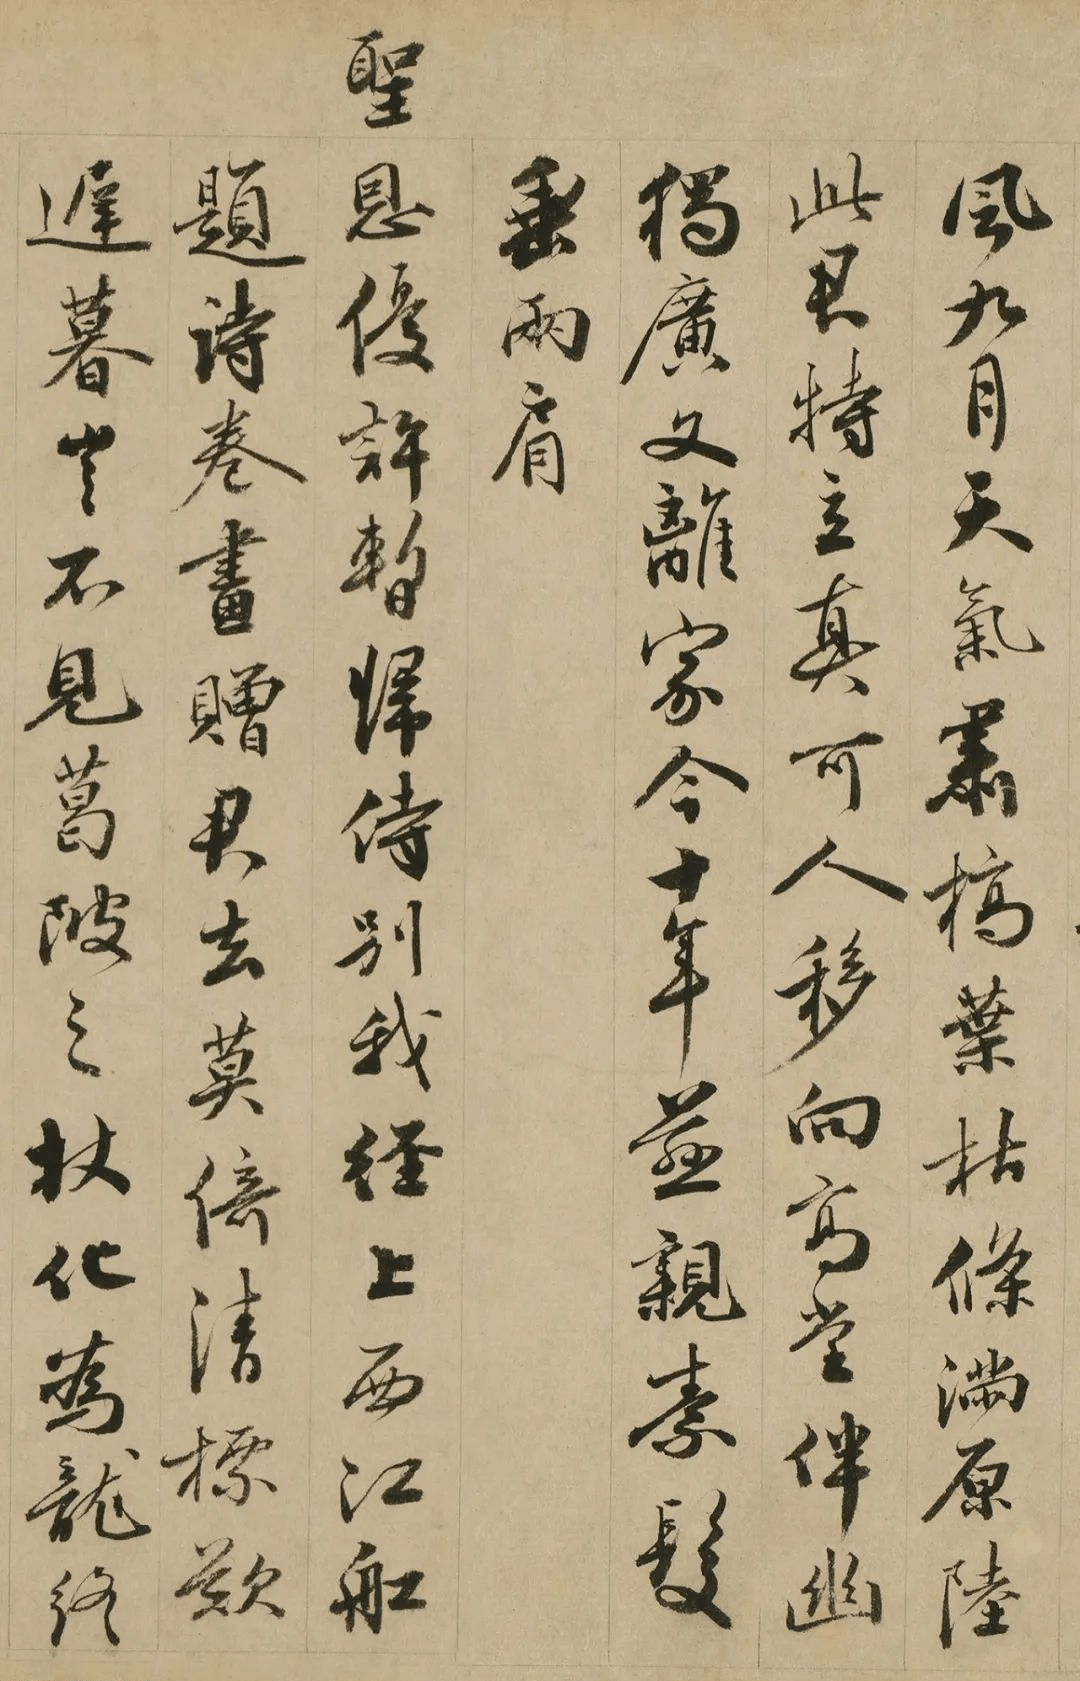 風九月天氣肅槁葉枯條滿原陸
此君特立真可人移向高堂伴幽
獨廣文離家今十年慈親素髮
垂兩肩
聖恩優許暫歸侍別我徑上西江船
題詩卷畫贈君去莫倚清標歎
遲暮豈不見葛陂之杖化為龍終